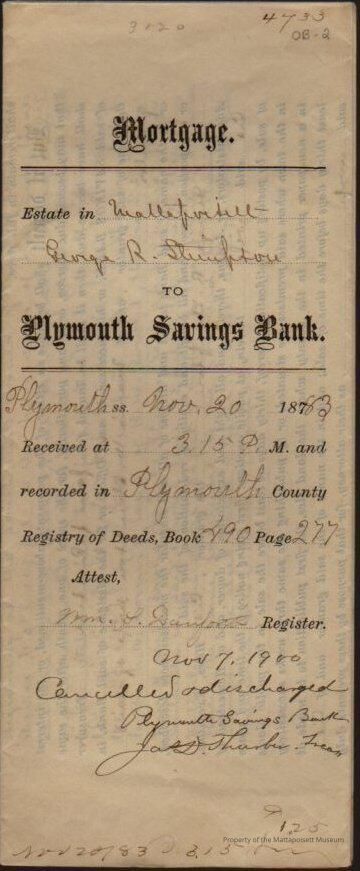 3120
4733
OB-2
Mortgage.
Estate in Mattapoisett
George R. Stimpson
TO
Plymouth Savings Bank.
Plymouth ss. Nov. 20 1883
Received at 3.15 P. M. and
recorded in Plymouth County
Registry of Deeds, Book 490 Page 277
Attest,
Wm. S. Danforth Register.
Nov 7. 1900
Cancelled & discharged
Plymouth Savings Bank
Jas D. Thurber Treas
125
Property of the Mattapoisett Museum
Nov 20/83 3.15 Pm